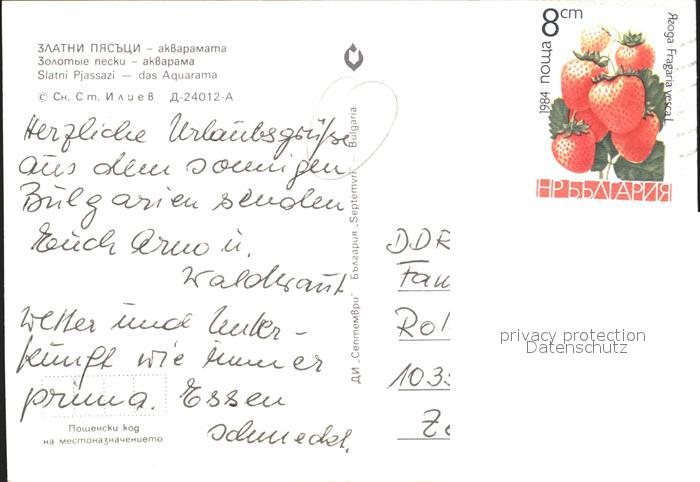 ЗЛАТНИ ПЯСЪЦИ – акварамата
Золотые пески – акварама
Slatni Pjassazi — das Aquarama
© Сн. Ст. Илиев Д-24012-А
Herzliche Urlaubsgrüße
aus dem sonnigen
Bulgarien senden
Euch Arno u.
Waldtraut
Wetter und Unter-
kunft wie immer
prima. Essen
schmeckt.
Пощенски код
на местоназначението
ДИ „Септември“ България „Septemvri“ Bulgaria
8 cm
1984 поща
Ягода·Fragaria vesca L.
НР БЪЛГАРИЯ
DDR
Fam
Rol
1035
privacy protection
Datenschutz